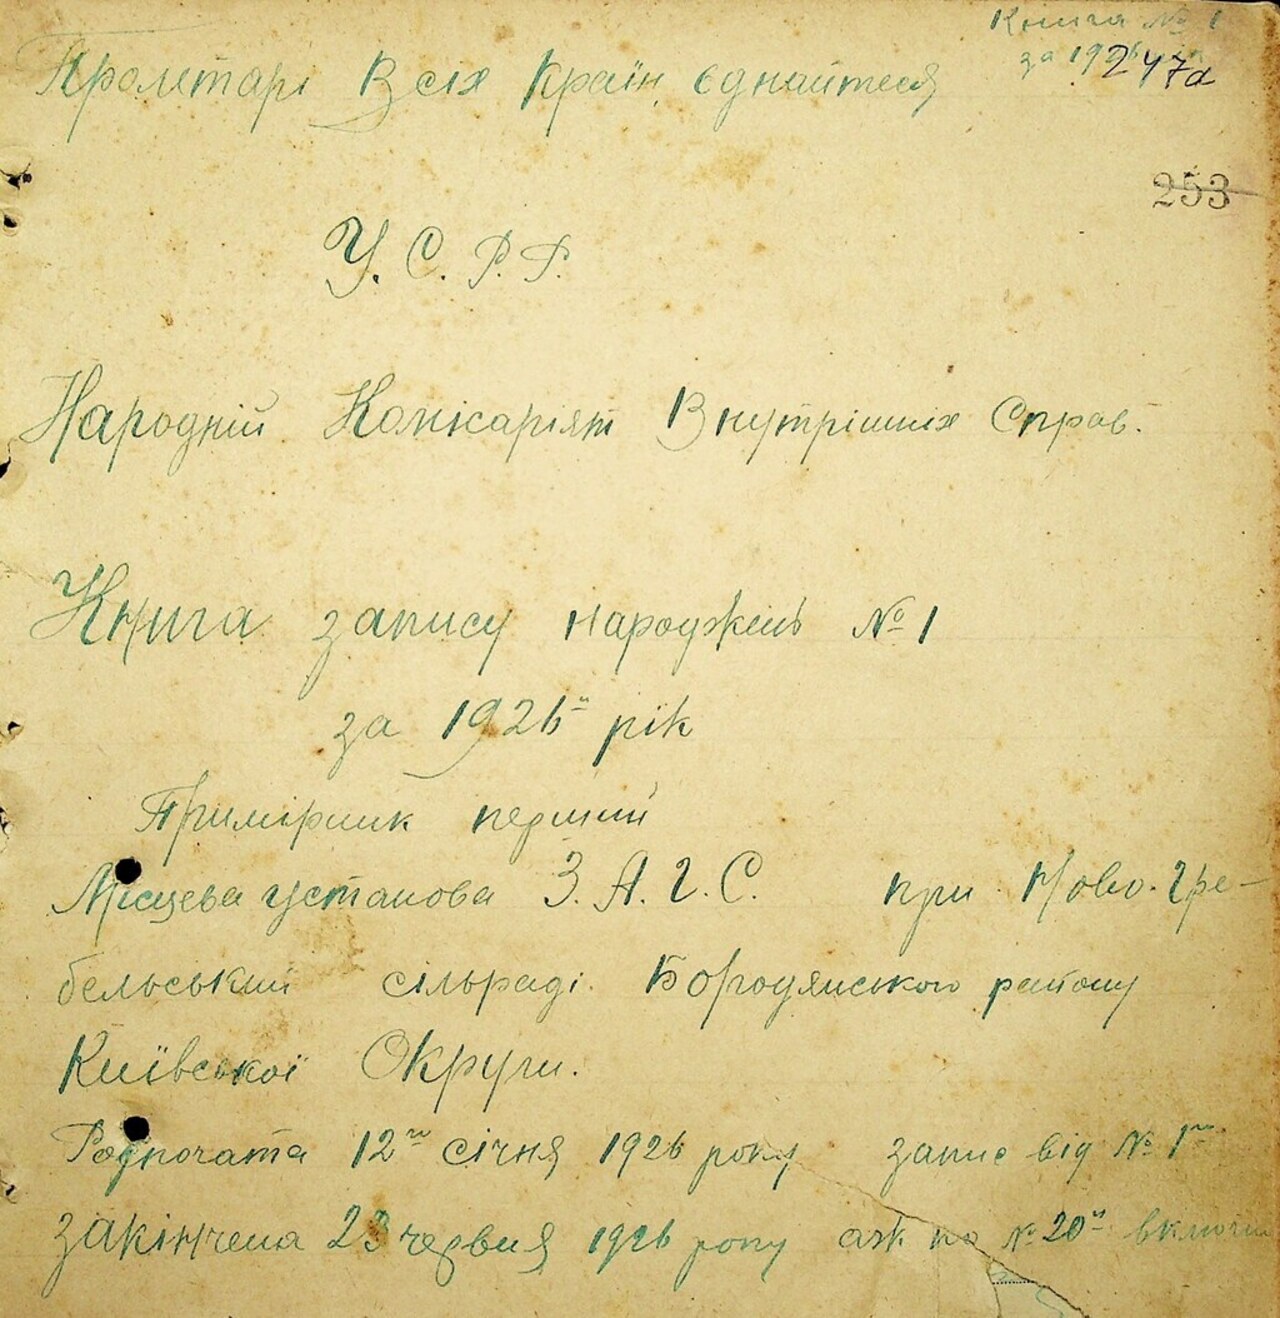 Книга № 1
за 1926
247а
Пролетарі Всіх Країн, єднайтеся
253
У. С. Р. Р.
Народній Комісаріят Внутрішніх Справ.
Книга запису народжень № 1
за 1926й рік
Примірник перший
Місцева установа З. А. Г. С. при Ново-Гре-
бельській сільраді Бородянського району
Київської Округи.
Розпочата 12го січня 1926 року запис від № 1го
закінчена 23 червня 1926 року аж по № 20й включно